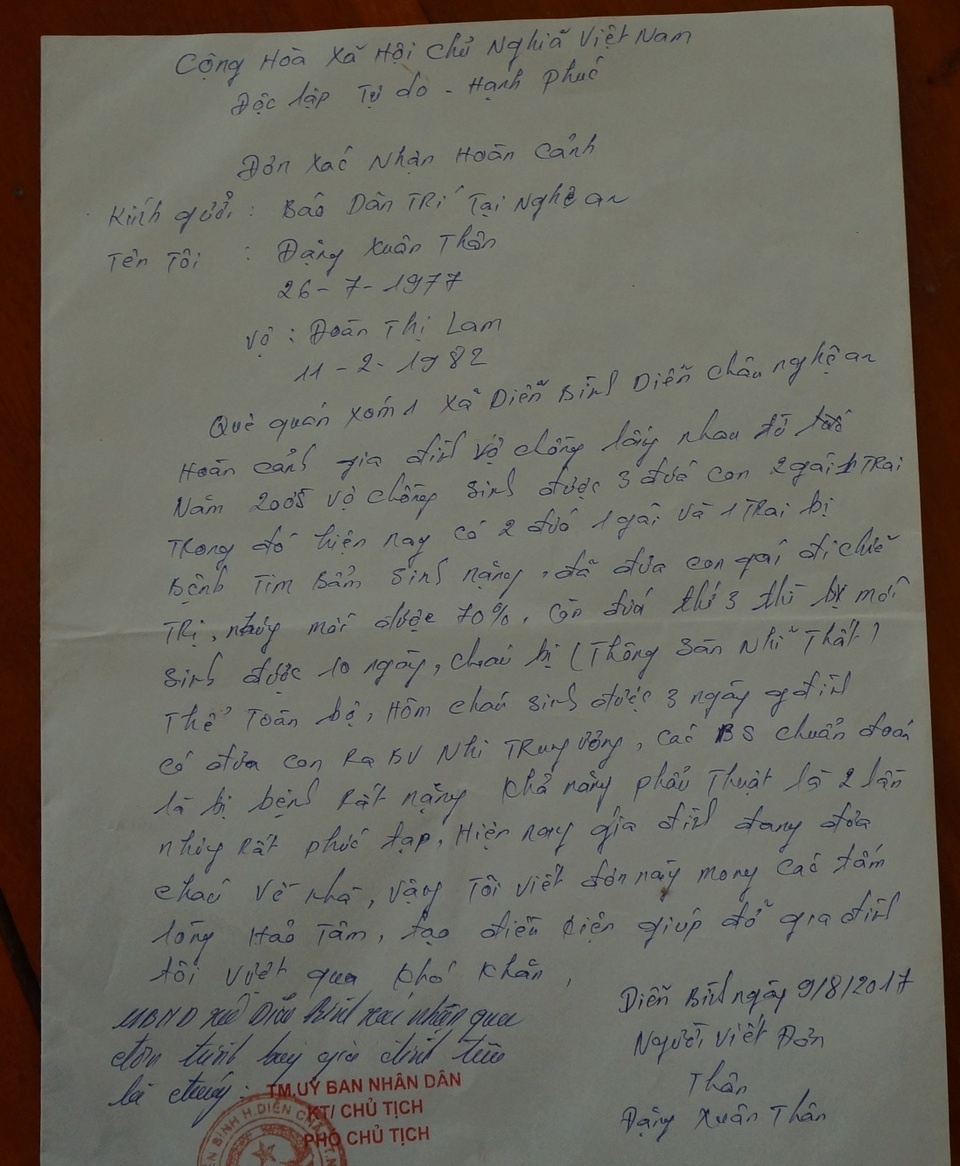 Cộng Hòa Xã Hội Chủ Nghiã Việt Nam
Độc lập Tự do - Hạnh phúc
Đơn Xác Nhận Hoàn Cảnh
Kính gưởi : Báo Dân TRí Tại Nghệ an
Tên Tôi : Đặng Xuân Thân
26-7-1977
Vợ : Đoàn Thị Lam
11-2-1982
Quê quán xóm 1 Xã Diễn Bình Diễn Châu nghệ an
Hoàn cảnh gia đình vợ chồng lấy nhau từ
Năm 2005 vợ chồng sinh được 3 đứa con 2 gái 1 TRai
TRong đó hiện nay có 2 đứa 1 gái và 1 TRai bị
Bệnh Tim Bẩm sinh nặng, đã đưa con gái đi chữa
TRị, nhưng mới được 70%, còn đứa thứ 3 thì mới
sinh được 10 ngày, cháu bị (Thông Sàn Nhĩ Thất)
Thể Toàn bộ, Hôm cháu sinh được 3 ngày g đình
có đưa con Ra BV Nhi TRung ương, các BS chuẩn đoán
là bị bệnh Rất nặng khả năng phẩu Thuật là 2 lần
nhưng Rất phức tạp, Hiện nay gia đình đang đưa
cháu về nhà, vậy Tôi viết đơn này mong các tấm
lòng Hảo Tâm, tạo điều kiện giúp đỡ gia đình
tôi vượt qua khó khăn,
Diễn Bình ngày 9/8/2017
Người viết Đơn
Thân
Đặng Xuân Thân
UBND xã Diễn Bình xác nhận qua
đơn trình bày gia đình trên
là đúng.
TM.UỶ BAN NHÂN DÂN
KT/ CHỦ TỊCH
PHÓ CHỦ TỊCH
BÌNH H.DIỄN CHÂU